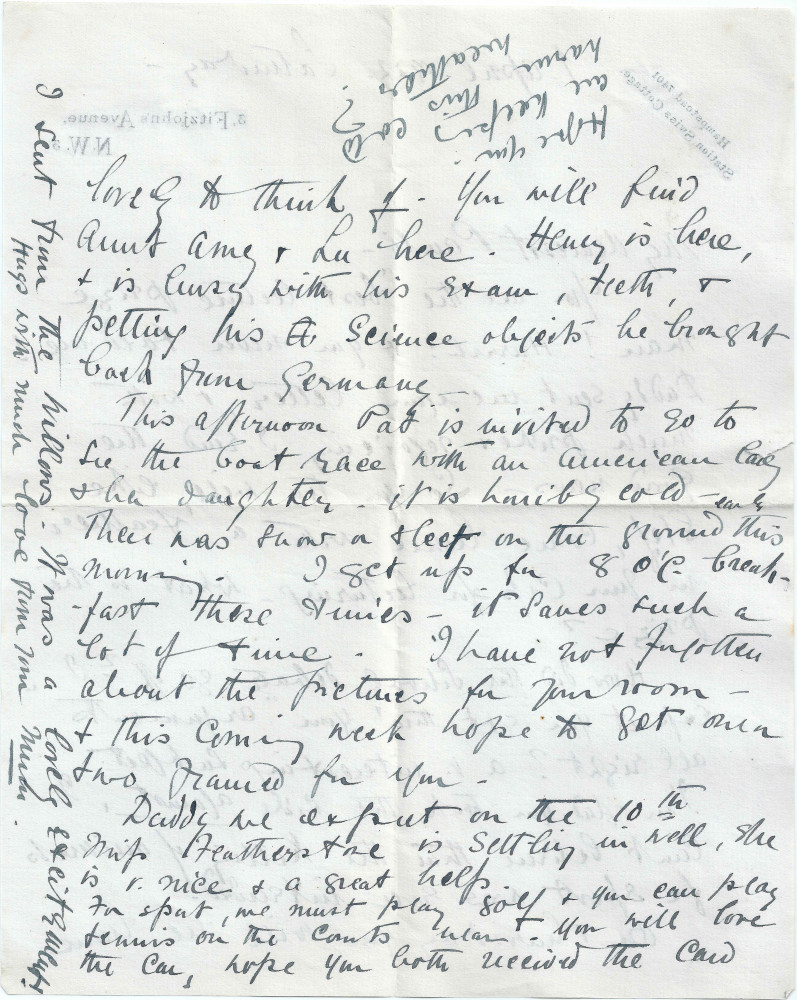 lovely to think of. You will find
Aunt Amy & Lu here. Henry is here,
& is busy with his Exam, teeth, &
petting his Science objects he brought
back from Germany
This afternoon Pat is invited to go to
see the boat race with an American lady
& her daughter. it is horribly cold –
there was snow or sleet on the ground this early
morning. I get up for 8 O'C. break-
-fast these times – it saves such a
lot of time. I have not forgotten
about the pictures for your room –
& this coming week hope to get one or
two framed for you.
Daddy we expect on the 10th
Miss Featherstone is settling in well, she
is v. nice & a great help
For sport, we must play golf & you can play
tennis on the courts near. You will love
the car, hope you both received the card
I sent from the Willows. It was a lovely excitement!
Hugs with much love from your Mum.
Hope you
are keeping
this cold
weather?
3. Fitzjohns Avenue.
N.W.3.
Hampstead 7301
Station Swiss Cottage.
Saturday –